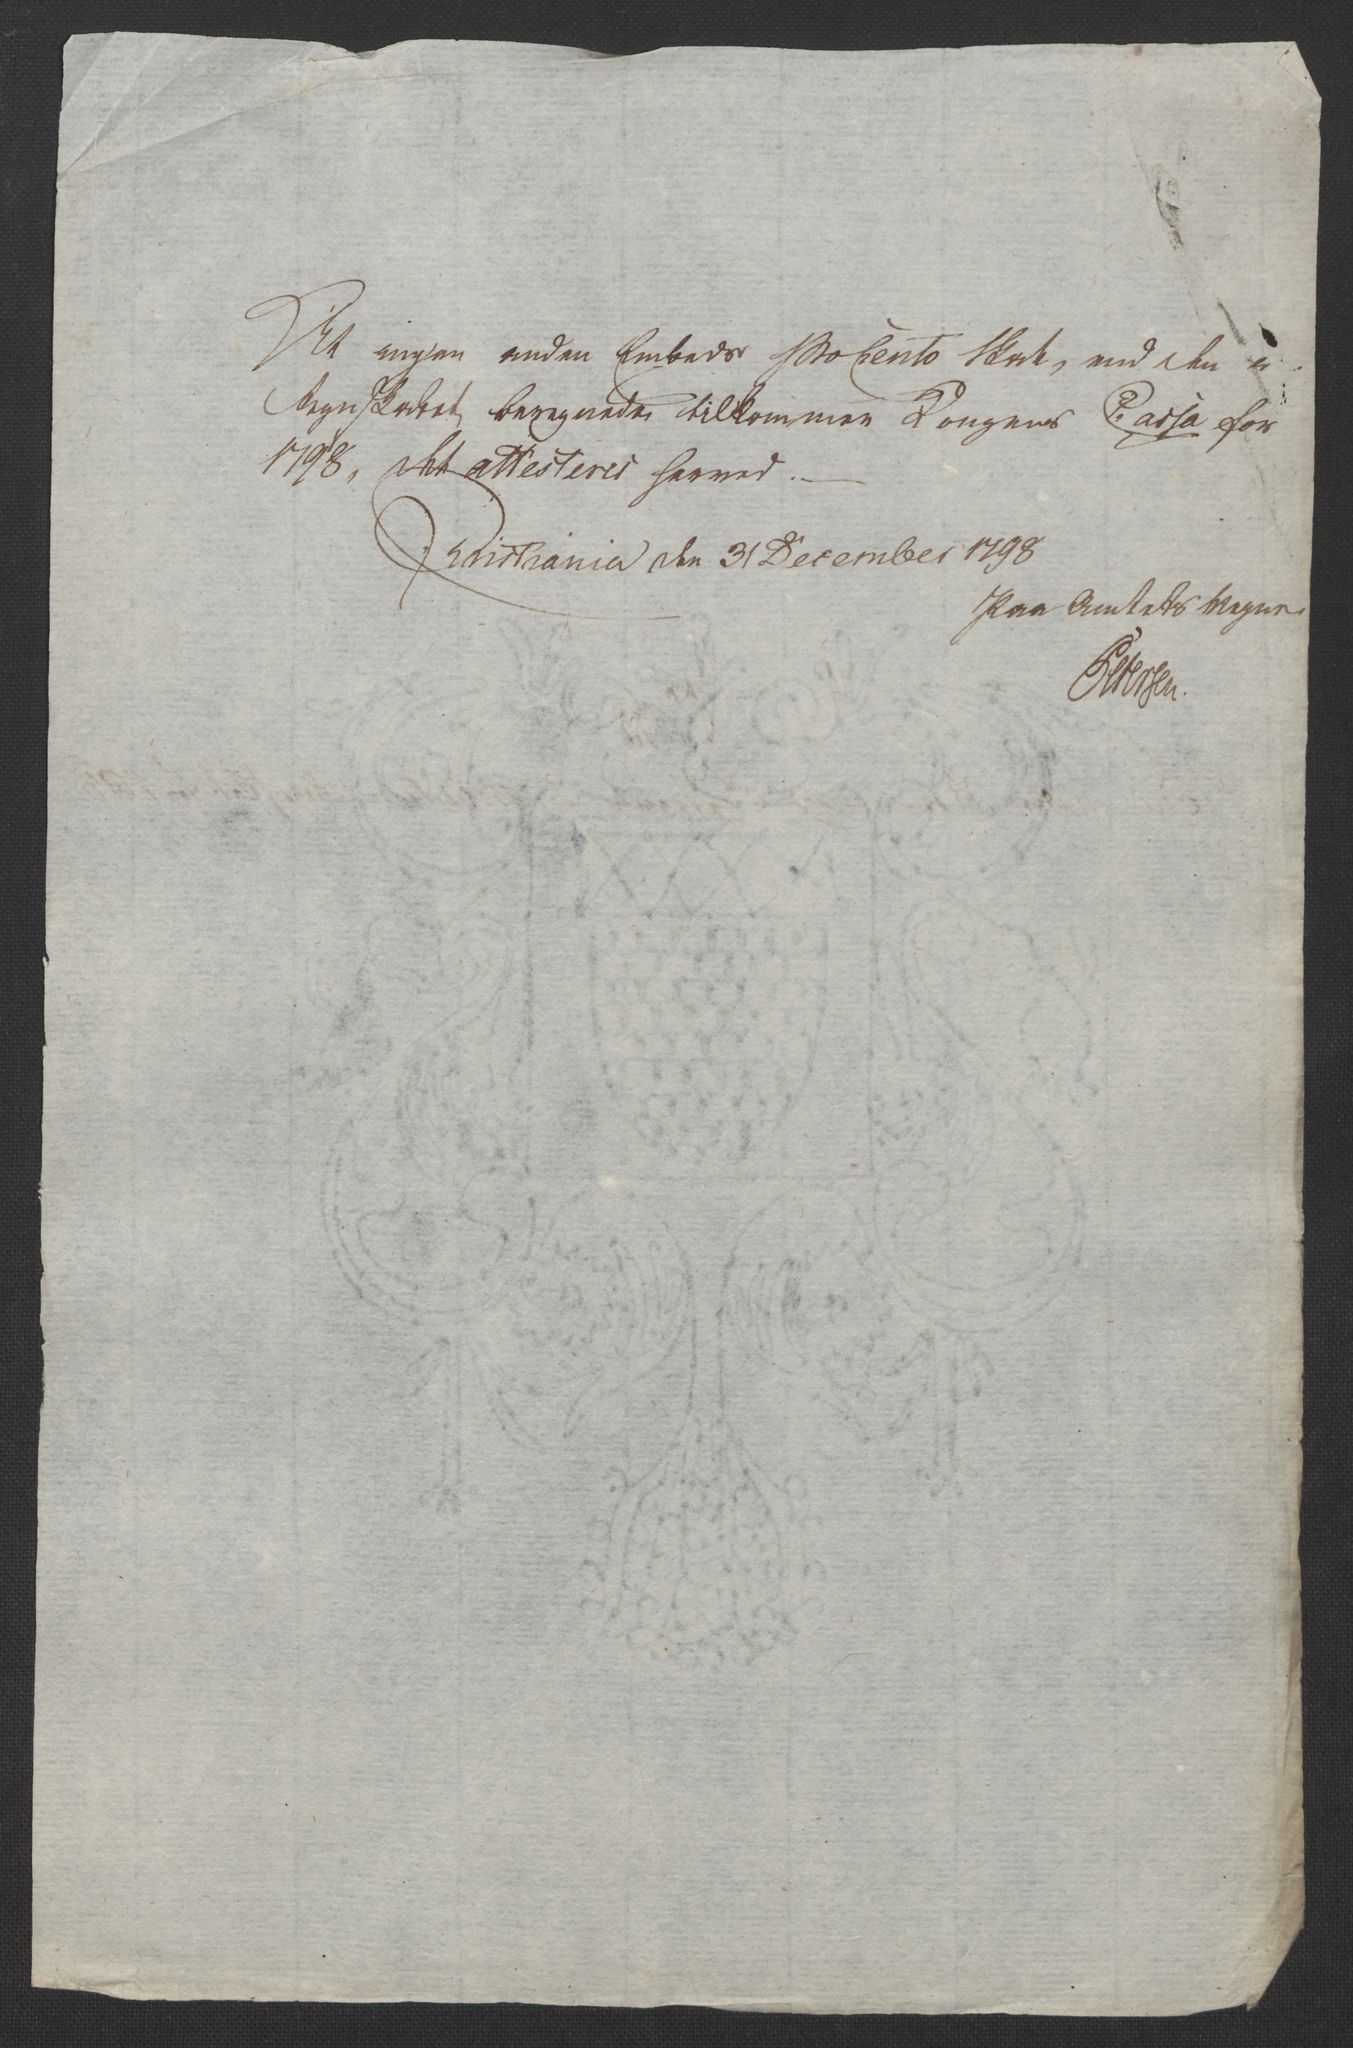 At ingen anden Embeds ProCento Skat, end den i
Regnskabet beregnede tilkommer Kongens Cassa for
1798, det attesteres herved. —
Christiania den 31 December 1798
Paa Amtets Vegne
Petersen.